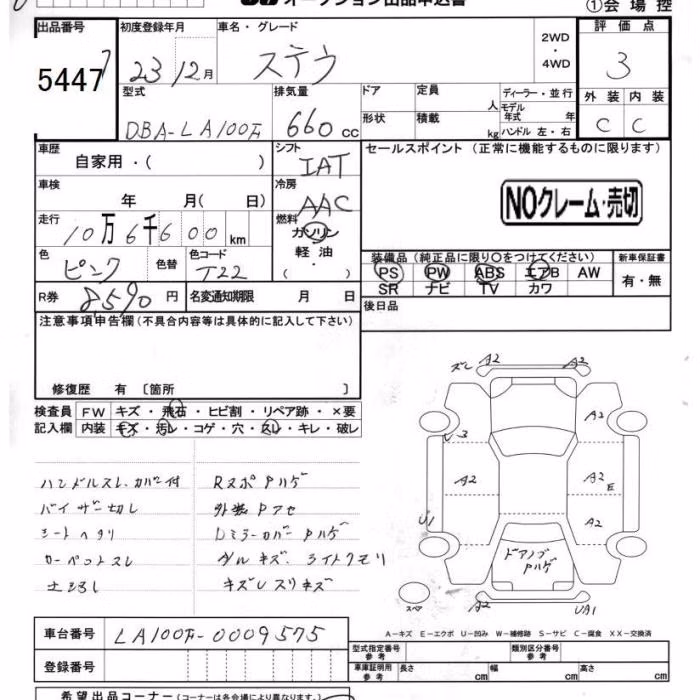 オークション出品申込書
①会場控
出品番号 初度登録年月 車名・グレード 2WD・4WD 評価点
5447 23/12月 ステラ 3
型式 排気量 ドア 定員 人 ディーラー・並行 外装 内装
DBA-LA100F 660cc 形状 積載 kg モデル年式 年 C C
ハンドル 左・右
車歴 自家用・( ) シフト IAT セールスポイント (正常に機能するものに限ります)
車検 年 月( 日) 冷房 AAC NOクレーム・売切
走行 10万6千600km 燃料 ガソリン 軽油 ( ・ )
色 ピンク 色替 色コード T22 装備品(純正品に限り○をつけてください) 新車保証書
PS PW ABS エアB AW 有・無
SR ナビ TV カワ
R券 8,590円 名変通知期限 月 日 後日品
注意事項申告欄(不具合内容等は具体的に記入して下さい)
修復歴 有 〔箇所 〕
検査員 FW キズ・飛石・ヒビ割・リペア跡・×要
記入欄 内装 キズ・汚レ・コゲ・穴・スレ・キレ・破レ
ハンドルスレ、カバー付 Rスポ Pハゲ
バイザー切レ 外装Pアセ
シートヘタリ Lミラーカバー Pハゲ
カーペットスレ ダルキズ、ライトクモリ
キズレスリキズ
ズレ A2 A2
A2
U3
A2 A2 E
U1 A2
ドアノブ Pハゲ
スペア A2 UA1
A-キズ E-エクボ U-凹み W-補修跡 S-サビ C-腐食 XX-交換済
車台番号 LA100F-0009575 型式指定番号 参考 類別区分番号 参考
登録番号 車庫証明用 参考 長さ cm 幅 cm 高さ cm
希望出品コーナー(コーナーは各会場により異なります)